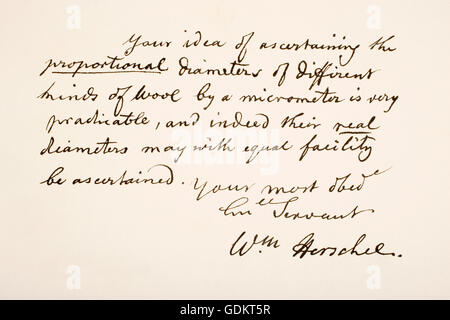 Your idea of ascertaining the
proportional diameters of different
kinds of Wool by a micrometer is very
practicable, and indeed their real
diameters may with equal facility
be ascertained. Your most obed.e
Servant
Wm Herschel.
alamy
GDKT5R